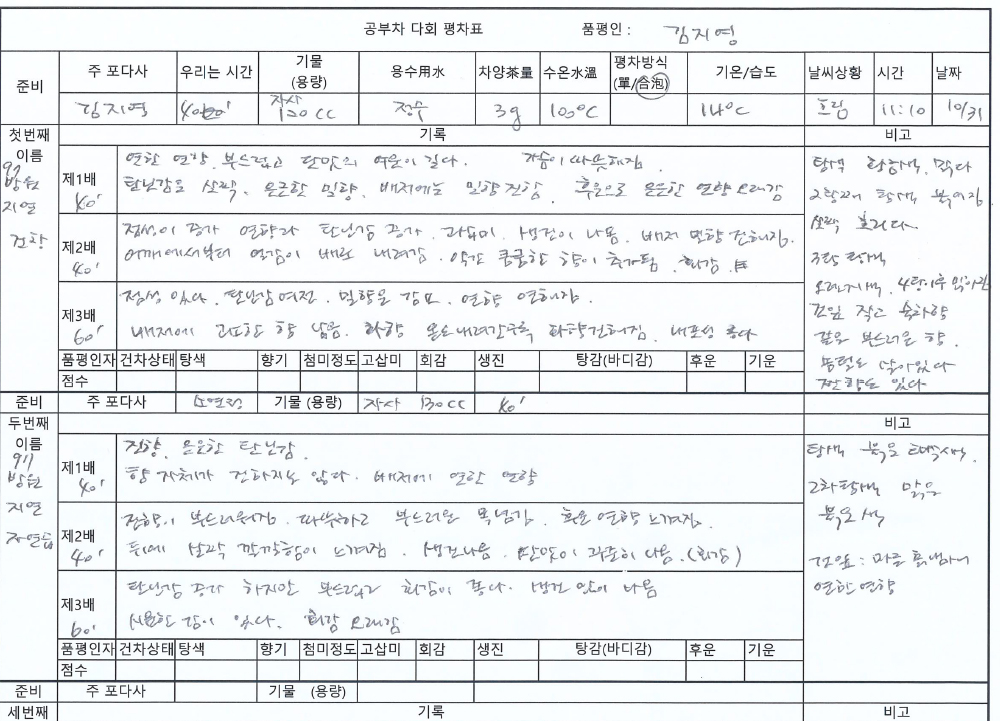 공부차 다회 평차표 품평인 : 김지영
준비 주 포다사 우리는 시간 기물 (용량) 용수用水 차양茶量 수온水溫 평차방식 (單/合泡) 기온/습도 날씨상황 시간 날짜
김지영 자사 120cc 정수 3g 100°C 14°C 흐림 11:10 10/31
첫번째 기록 비고
이름
97
방원
지연
건창
제1배 40'
연한 연향. 부드럽고 단맛의 여운이 길다. 가슴이 따뜻해짐
탄닌감은 살짝. 은은한 밀향. 배저에는 밀향 진함. 후운으로 은은한 연향 오래감
제2배 40'
점성이 증가 연향과 탄닌감 증가. 생진이 나옴. 배저 밀향 진해짐.
어깨에서부터 열감이 배로 내려감. 약간 쿰쿰한 향이 추가됨. 회감
제3배 60'
점성 있다. 탄닌감 여전. 밀향은 감소. 연향 연해짐.
배저에 향 남음. 화향 온도 내려갈수록 진해짐. 내포성 좋다
탕색 맑다
2탕째 탕색 붉어짐
살짝 흐리다
3탕 탕색
오렌지색. 4탕이후
건잎 작고
같은 부드러운 향.
있다
품평인자 건차상태 탕색 향기 첨미정도 고삽미 회감 생진 탕감(바디감) 후운 기운
점수
준비 주 포다사 소연정 기물 (용량) 자사 130cc 40'
두번째 비고
이름
911
방원
지연
제1배 40'
진향. 은은한 탄닌감.
향 자체가 진하지는 않다. 배저에 연한 연향
제2배 40'
진향이 부드러워짐. 따뜻하고 부드러운 목넘김. 후운 연향 느껴짐.
뒤에 살짝 느껴짐. 생진 나옴. 단맛이 나옴. (회감)
제3배 60'
탄닌감 증가 하지만 부드럽고 회감이 좋다. 생진 많이 나옴
시원한 감이 있다. 회감 오래감
탕색 붉은
2차 탕색 맑은
붉은 색
건잎 : 마른
연한 연향
품평인자 건차상태 탕색 향기 첨미정도 고삽미 회감 생진 탕감(바디감) 후운 기운
점수
준비 주 포다사 기물 (용량)
세번째 기록 비고